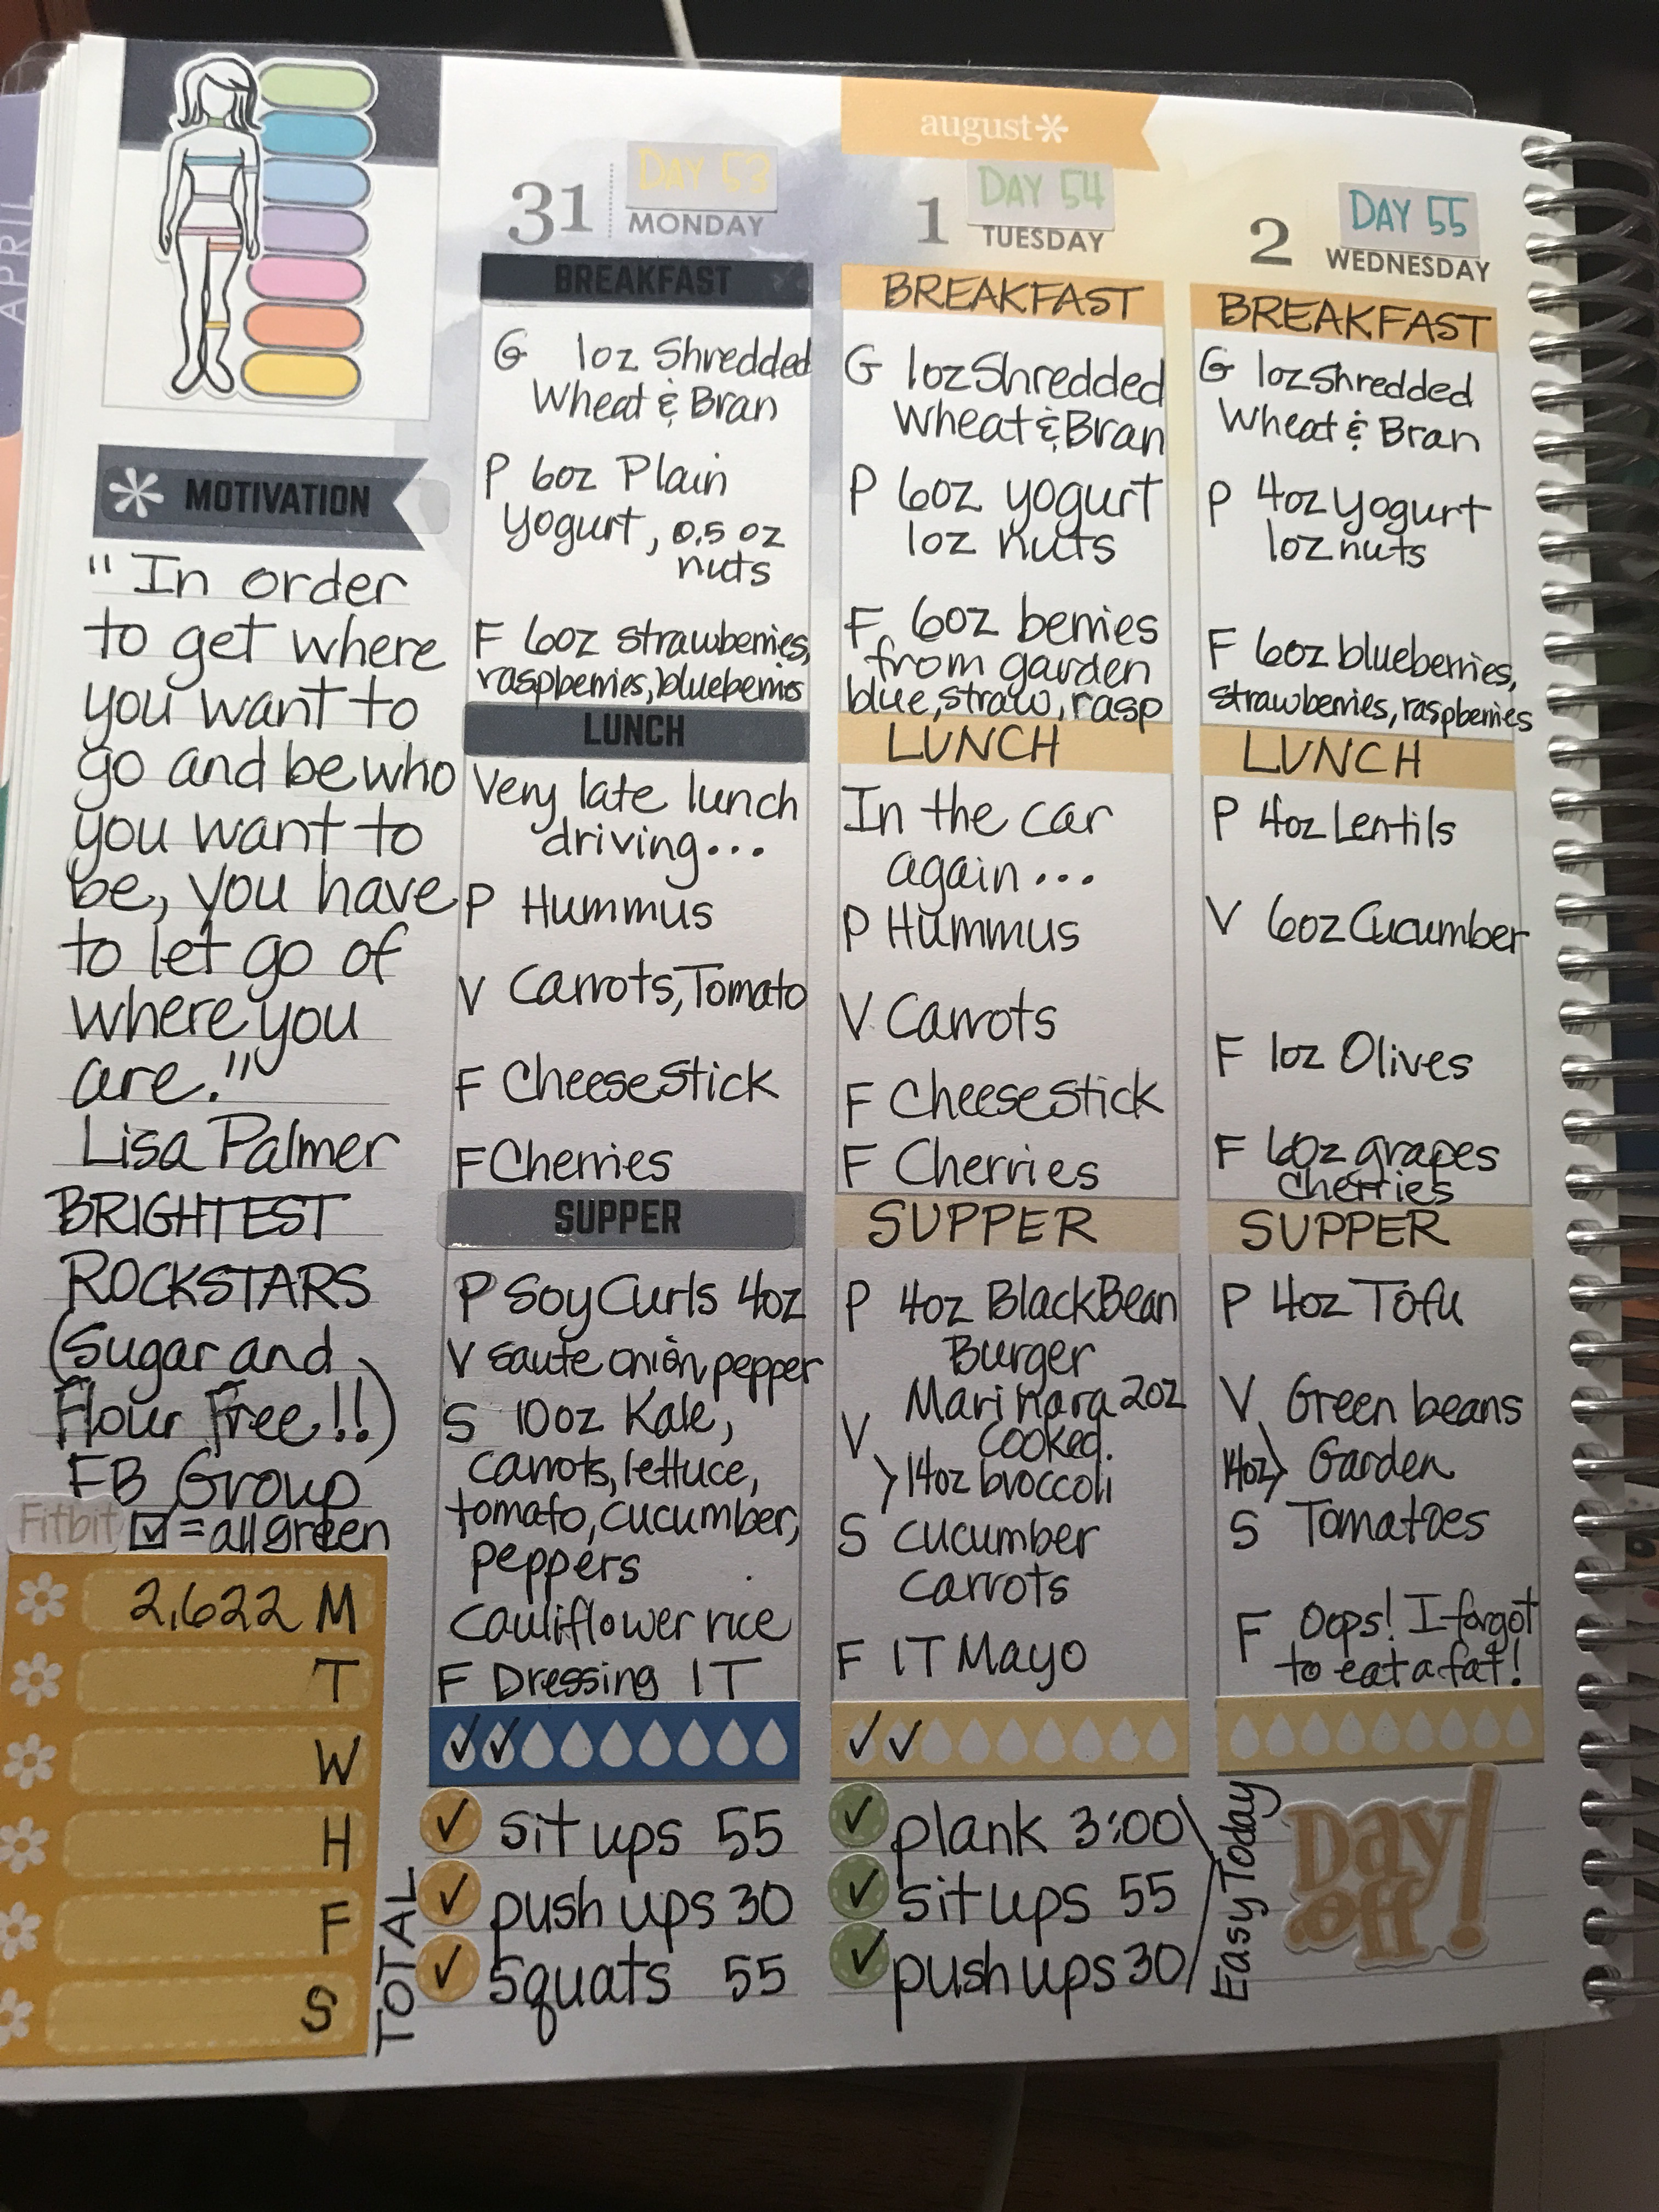 APRIL
MOTIVATION
"In order
to get where
you want to
go and be who
you want to
be, you have
to let go of
where you
are."
Lisa Palmer
BRIGHTEST
ROCKSTARS
(Sugar and
Flour Free!!)
FB Group
Fitbit ☑ = all green
2,622 M
T
W
H
F
S
TOTAL
31 DAY 53
MONDAY
BREAKFAST
G 1oz Shredded
Wheat & Bran
P 6oz Plain
Yogurt, 0.5 oz
nuts
F 6oz strawberries,
raspberries, blueberries
LUNCH
Very late lunch
driving...
P Hummus
V Carrots, Tomato
F Cheese Stick
F Cherries
SUPPER
P Soy Curls 4oz
V saute onion pepper
S 10oz Kale,
carrots, lettuce,
tomato, cucumber,
peppers
Cauliflower rice
F Dressing 1T
✓ sit ups 55
✓ push ups 30
✓ squats 55
august*
1 DAY 54
TUESDAY
BREAKFAST
G 1oz Shredded
Wheat & Bran
P 6oz yogurt
1oz nuts
F 6oz berries
from garden
blue, straw, rasp
LUNCH
In the car
again...
P Hummus
V Carrots
F Cheese stick
F Cherries
SUPPER
P 4oz Black Bean
Burger
Marinara 2oz
V cooked.
>14oz broccoli
S cucumber
carrots
F 1T Mayo
✓ plank 3:00
✓ sit ups 55
✓ push ups 30
Easy Today
2 DAY 55
WEDNESDAY
BREAKFAST
G 1oz shredded
Wheat & Bran
P 4oz yogurt
1oz nuts
F 6oz blueberries,
strawberries, raspberries
LUNCH
P 4oz Lentils
V 6oz Cucumber
F 1oz Olives
F 6oz grapes
cherries
SUPPER
P 4oz Tofu
V Green beans
14oz> Garden
S Tomatoes
F Oops! I forgot
to eat a fat!
Day
off!